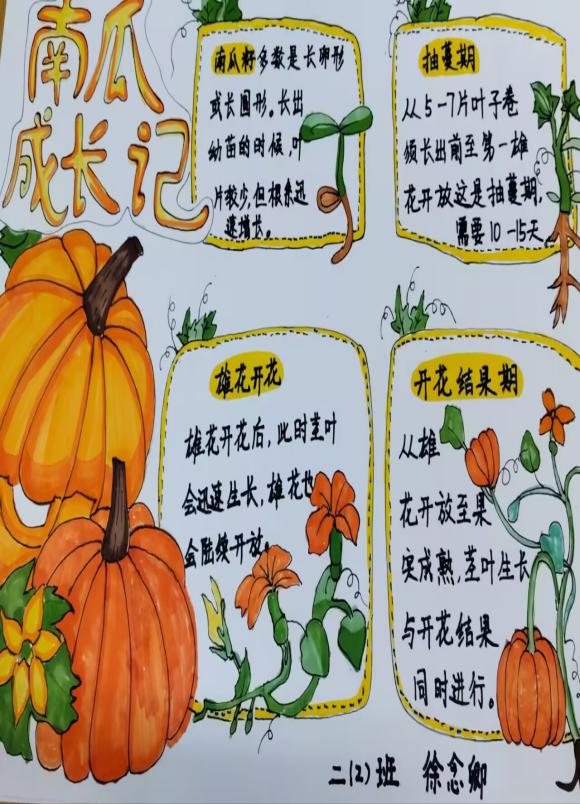 南瓜
成长记
南瓜籽多数是长卵形
或长圆形。长出
幼苗的时候,叶
片较少,但根系迅
速增长。
抽蔓期
从5-7片叶子卷
须长出前至第一雄
花开放这是抽蔓期,
需要10-15天。
雄花开花
雄花开花后,此时茎叶
会迅速生长,雄花也
会陆续开放。
开花结果期
从雄
花开放至果
实成熟,茎叶生长
与开花结果
同时进行。
二(2)班 徐念卿